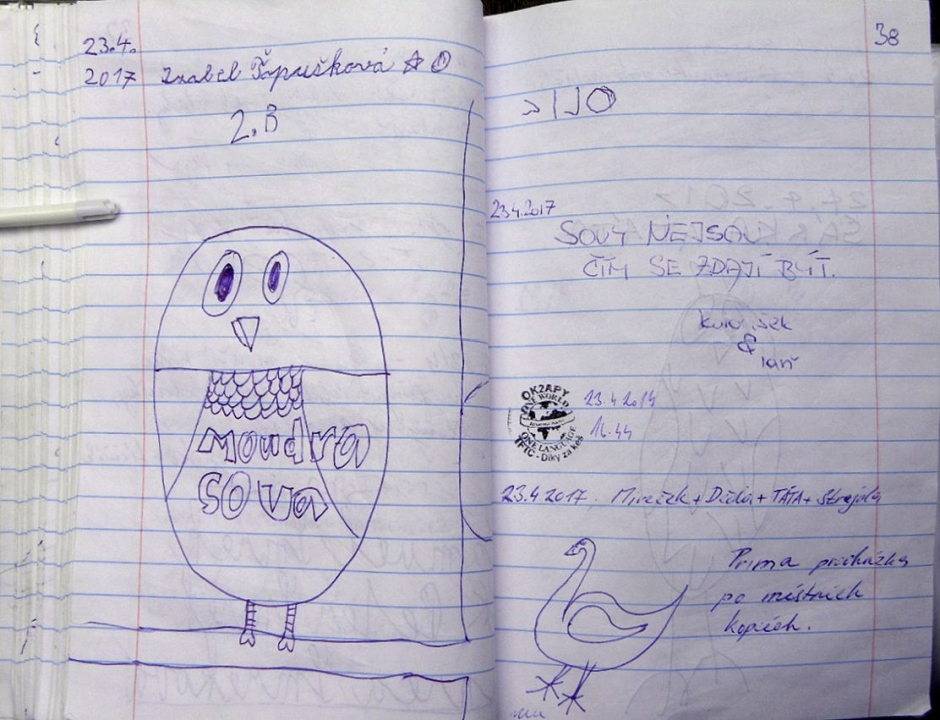 23.4.
2017 Izabel Ťapušková
2. B
Moudra
SOVa
38
23.4.2017
SOVY NEJSOU
ČÍM SE ZDAJÍ BÝT.
&
OK2APY
ONE WORLD
ONE LANGUAGE
TFTC - Díky za keš
23.4.2017
14.44
23.4 2017. Mireček + Děda + TÁTA +
Prima procházka
po místních
kopcích.